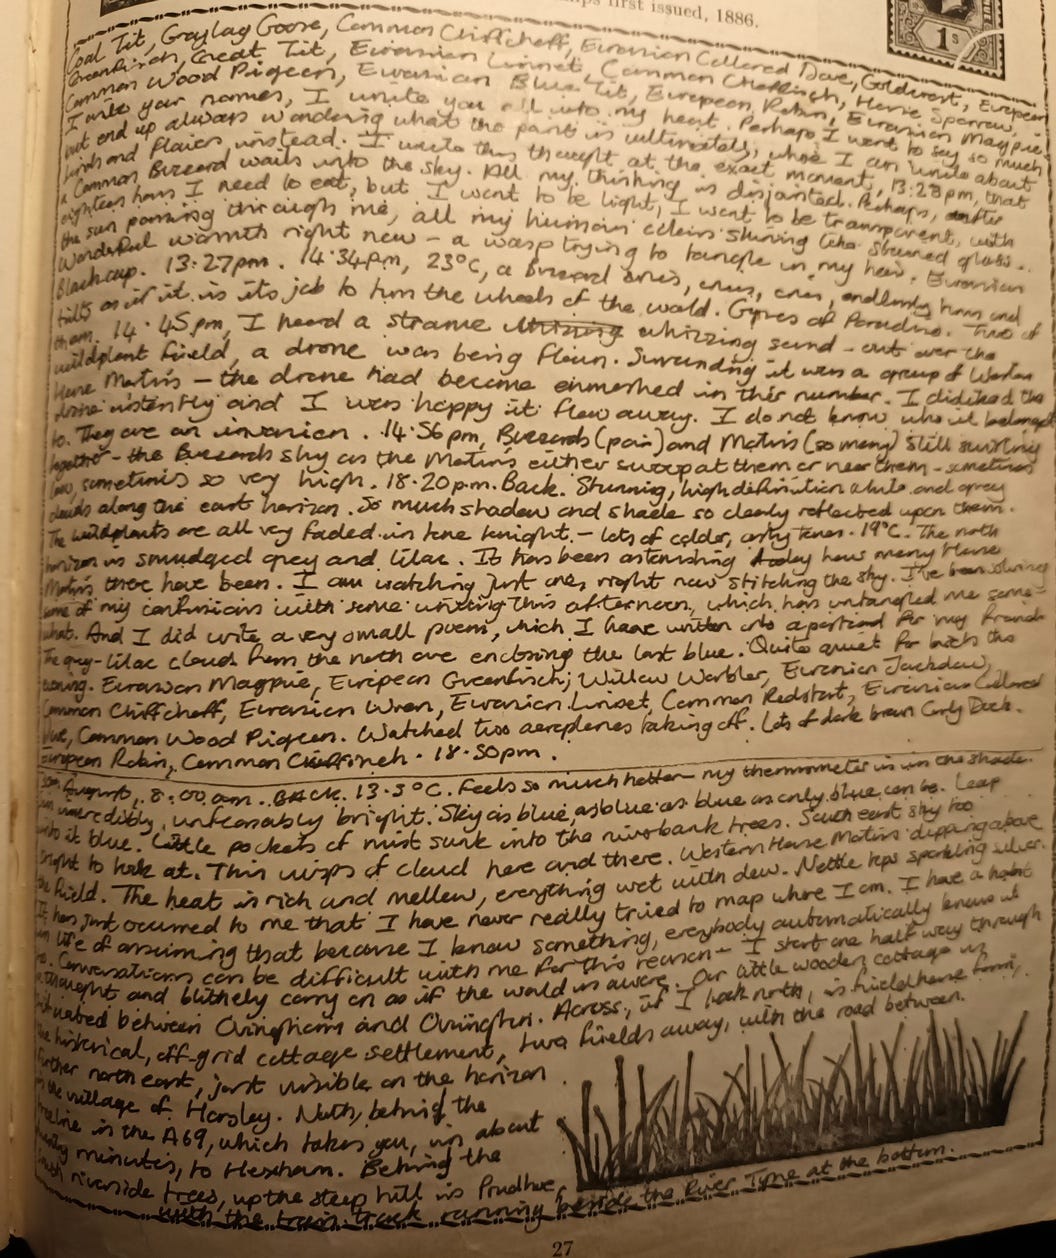 first issued, 1886.
1s
Coal Tit, Graylag Goose, Common Chiffchaff, Eurasian Collered Dove, Goldcrest, European
Greenfinch, Great Tit, Eurasian Linnet, Common Chaffinch, House Sparrow,
Common Wood Pigeon, Eurasian Blue Tit, European Robin, Eurasian Magpie.
I write your names, I write you all into my heart. Perhaps I want to say so much
but end up always wondering what the point is ultimately, when I am write about
birds and flowers instead. I write this thought at the exact moment, 13:28pm, that
a Common Buzzard wails into the sky. All my thinking is disjointed. Perhaps, after
eighteen hours I need to eat, but I want to be light, I want to be transparent, with
the sun passing through me, all my human colours shining like stained glass.
Wonderful warmth right now – a wasp trying to tangle in my hair. Eurasian
Blackcap. 13:27pm. 14:34pm, 23°C, a Buzzard cries, cries, cries, endlessly turns and
tilts as if it is its job to turn the wheels of the world. Gyres of Paradise. Two of
them. 14:45pm, I heard a strange whizzing sound – out over the
wildplant field, a drone was being flown. Surrounding it was a group of Western
House Martins – the drone had become enmeshed in their number. I disliked the
drone instantly and I was happy it flew away. I do not know who it belonged
to. They are an invasion. 14:56pm, Buzzards (pair) and Martins (so many) still swirling
together – the Buzzards shy as the Martins either swoop at them or near them – sometimes
low, sometimes so very high. 18:20pm. Back. Stunning, high definition white and grey
clouds along the east horizon. So much shadow and shade so clearly reflected upon them.
The wildplants are all very faded in tone tonight – lots of colder, ashy tones. 19°C. The north
horizon is smudged grey and lilac. It has been astonishing today how many House
Martins there have been. I am watching just one, right now stitching the sky. I've been solving
some of my confusions with some writing this afternoon, which has untangled me some-
what. And I did write a very small poem, which I have written onto a postcard for my friend.
The grey-lilac clouds from the north are enclosing the last blue. Quite quiet for birds this
evening. Eurasian Magpie, European Greenfinch, Willow Warbler, Eurasian Jackdaw,
Common Chiffchaff, Eurasian Wren, Eurasian Linnet, Common Redstart, Eurasian Collered
Dove, Common Wood Pigeon. Watched two aeroplanes taking off. Lots of dark brown Curly Dock.
European Robin, Common Chaffinch. 18:50pm.
August, 8:00am. BACK. 13.5°C. Feels so much hotter – my thermometer is in the shade.
Sun incredibly, unfeasably bright. Sky as blue, as blue as blue as only blue can be. Leap
into it blue. Little pockets of mist sunk into the riverbank trees. South east sky too
bright to look at. Thin wisps of cloud here and there. Western House Martins dipping above
the field. The heat is rich and mellow, everything wet with dew. Nettle tops sparkling silver.
It has just ocurred to me that I have never really tried to map where I am. I have a habit
in life of assuming that because I know something, everybody automatically knows it
too. Conversations can be difficult with me for this reason – I start one half way through
a thought and blithely carry on as if the world is aware. Our little wooden cottage is
situated between Ovingham and Ovington. Across, if I look north, is fieldhouse farm,
the historical, off-grid cottage settlement, two fields away, with the road between.
Further north east, just visible on the horizon
is the village of Horsley. North, behind the
treeline is the A69, which takes you, in about
twenty minutes, to Hexham. Behind the
south riverside trees, up the steep hill is Prudhoe,
with the train track running beside the River Tyne at the bottom.
27